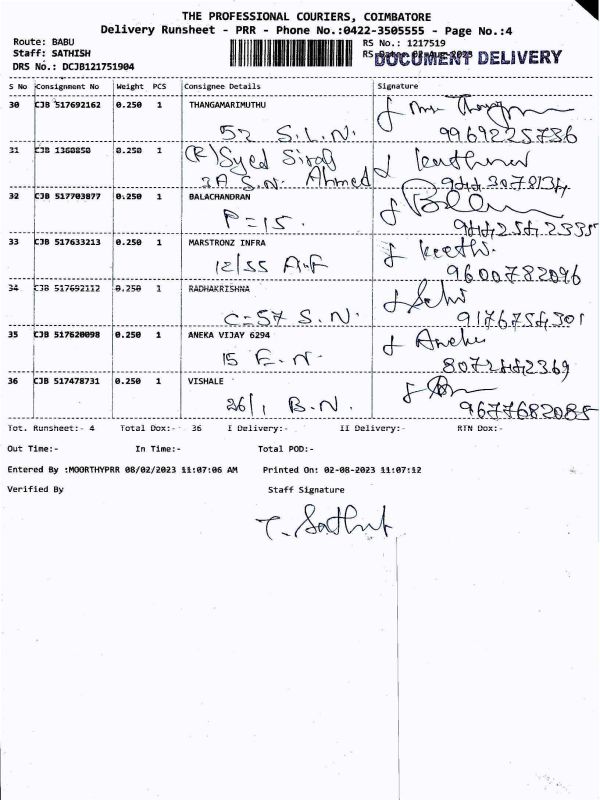 THE PROFESSIONAL COURIERS, COIMBATORE
Delivery Runsheet - PRR - Phone No.:0422-3505555 - Page No.:4
Route: BABU
RS No.: 1217519
Staff: SATHISH
RS Date: 02-Aug-2023
DOCUMENT DELIVERY
DRS No.: DCJB121751904
S No Consignment No Weight PCS Consignee Details Signature
30 CJB 517692162 0.250 1 THANGAMARIMUTHU
52 S.L.N. 9969225786
31 CJB 1360850 0.250 1 (R) Syed Siraj
3A S.N. Ahmed 9443078134
32 CJB 517703877 0.250 1 BALACHANDRAN
P=15. 9442542335
33 CJB 517633213 0.250 1 MARSTRONZ INFRA Keethi.
12/55 A.F 9600782096
34 CJB 517692112 0.250 1 RADHAKRISHNA Selvi
C=57 S.N. 9176754301
35 CJB 517620098 0.250 1 ANEKA VIJAY 6294
15 E.N. 8072442369
36 CJB 517478731 0.250 1 VISHALE
26/1 B.N. 9677682085
Tot. Runsheet:- 4 Total Dox:- 36 I Delivery:- II Delivery:- RTN Dox:-
Out Time:- In Time:- Total POD:-
Entered By :MOORTHYPRR 08/02/2023 11:07:06 AM Printed On: 02-08-2023 11:07:12
Verified By Staff Signature